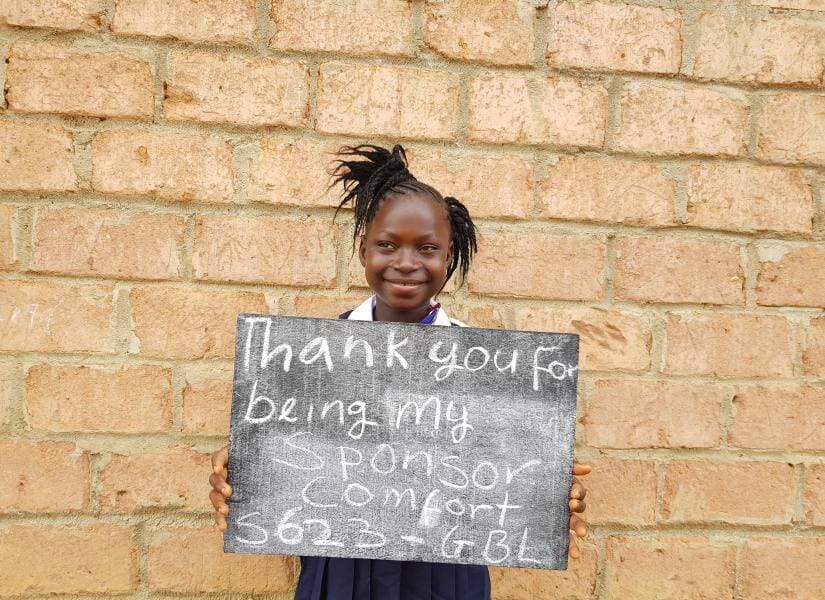 Thank you for
being my
Sponsor.
Comfort
S623-GBL